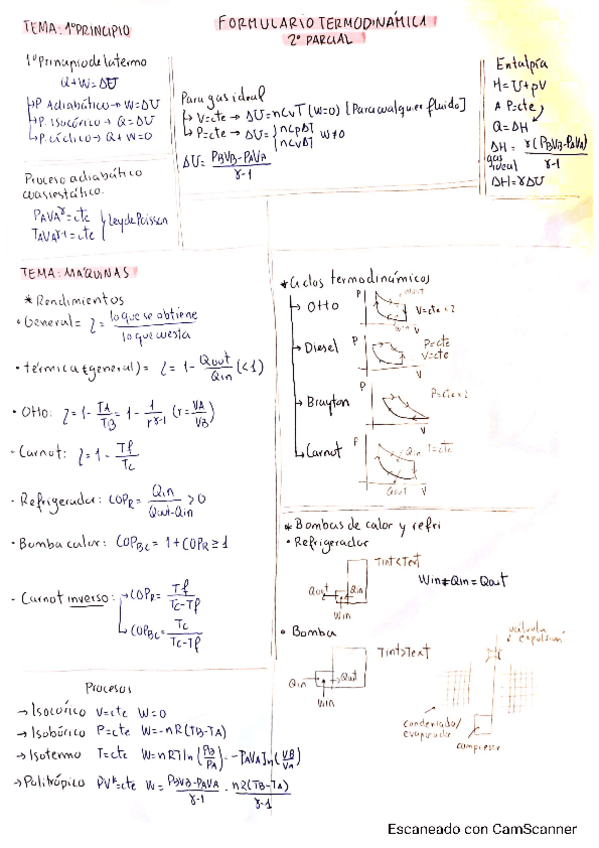 FORMULARIO TERMODINÁMICA
2º PARCIAL
TEMA: 1º PRINCIPIO
1º Principio de la termo
Q+W=ΔU
P. Adiabático → W=ΔU
P. Isocórico → Q=ΔU
P. cíclico → Q+W=0
Para gas ideal
V=cte → ΔU=nCvT (W=0) [Para cualquier fluido]
P=cte → ΔU= { nCpΔT
nCvΔT W≠0
ΔU= (PBVB-PAVA)/(γ-1)
Entalpía
H=U+pV
A P=cte
Q=ΔH
ΔH = γ(PBVB-PAVA)/(γ-1)
gas ideal
ΔH=γΔU
Proceso adiabático
cuasiestático.
PAVA^γ=cte
TAVA^γ-1=cte
Ley de Poisson
TEMA: MÁQUINAS
* Rendimientos
• General= η = lo que se obtiene / lo que cuesta
• térmica (general)= η=1- Qout/Qin (<1)
• Otto: η=1- TA/TB = 1- 1/r^γ-1 (r= VA/VB)
• Carnot: η=1- Tf/Tc
• Refrigerador: COPR= Qin/(Qout-Qin) >0
• Bomba calor: COPBC=1+COPR≥1
• Carnot inverso: → COPR= Tf/(Tc-Tf)
→ COPBC= Tc/(Tc-Tf)
* Ciclos termodinámicos
→ Otto
P
Qout
V=cte x 2
Win
V
→ Diesel
P
P=cte
V=cte
V
→ Brayton
P
P=cte x 2
V
→ Carnot
P
Qin
T=cte
Qout
V
* Bombas de calor y refri
• Refrigerador
Tint<Text
Qout
Qin
Win
Win+Qin=Qout
• Bomba
Tint>Text
Qin
Qout
Win
válvula
expulsión
condensado/
evaporador
compresor
Procesos
→ Isocórico V=cte W=0
→ Isobárico P=cte W=-nR(TB-TA)
→ Isotermo T=cte W=nRTln(PB/PA) = -PAVAln(VB/VA)
→ Politrópico PV^k=cte W= (PBVB-PAVA)/(γ-1) = nR(TB-TA)/(γ-1)
Escaneado con CamScanner